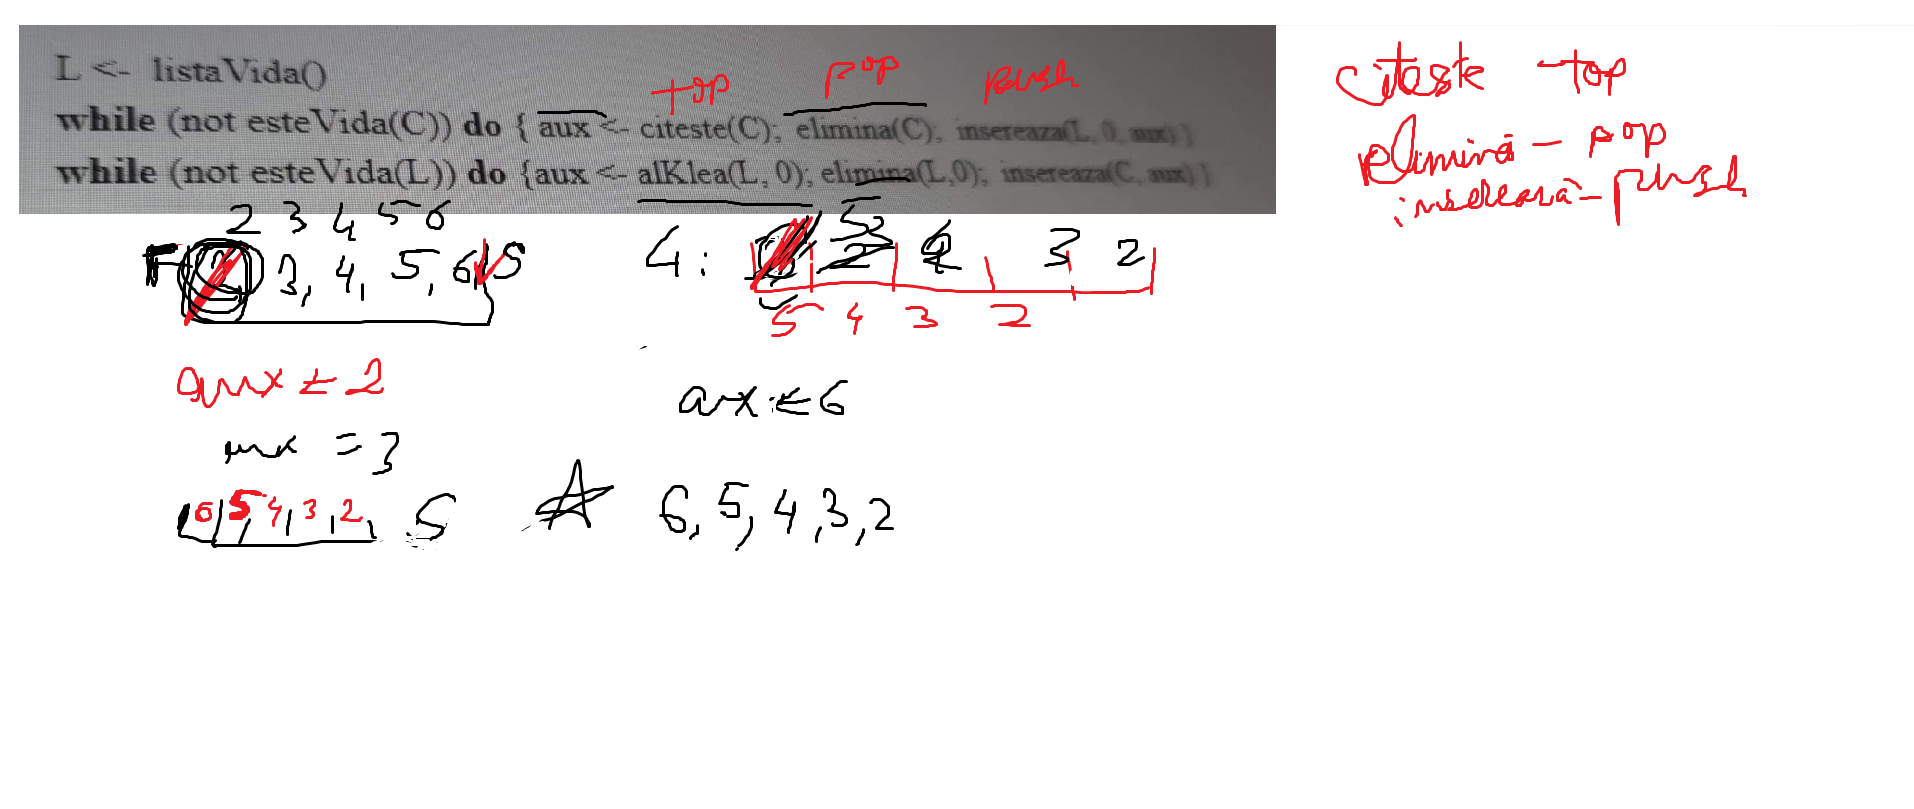 top pop push
L <- listaVida()
while (not esteVida(C)) do { aux <- citeste(C); elimina(C); insereaza(L, 0, aux) }
while (not esteVida(L)) do {aux <- alKlea(L, 0); elimina(L,0); insereaza(C, aux) }
citeste - top
elimină - pop
inserează - push
2 3 4 5 6
F 2 3, 4, 5, 6 S
5
4: 3 2
5 4 3 2
aux ← 2
aux ← 6
aux = 3
6 5, 4, 3, 2, S
6, 5, 4, 3, 2